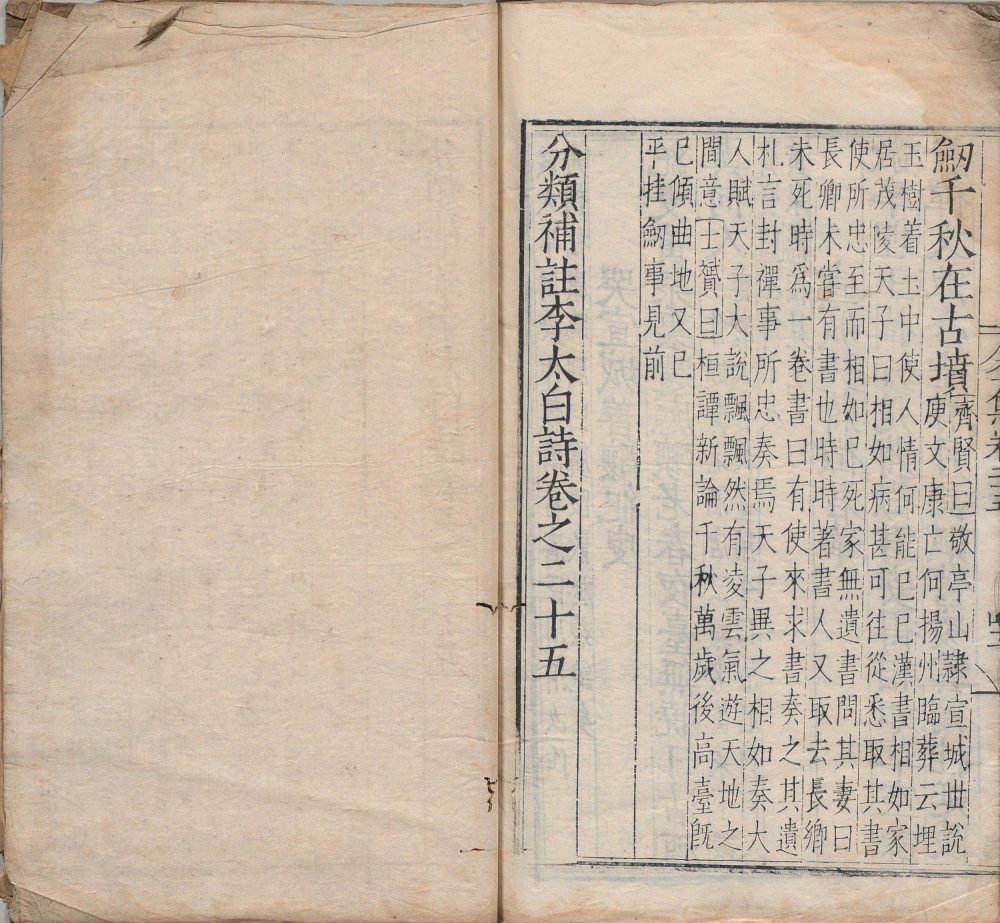 劒千秋在古墳
齊賢曰敬亭山隷宣城世說
庾文康亡何揚州臨葬云埋
玉樹着土中使人情何能已已漢書相如家
居茂陵天子曰相如病甚可往從悉取其書
使所忠至而相如已死家無遺書問其妻曰
長卿未嘗有書也時時著書人又取去長卿
未死時爲一卷書曰有使來求書奏之其遺
札言封禪事所忠奏焉天子異之相如奏大
人賦天子大說飄飄然有凌雲氣遊天地之
間意士贇曰桓譚新論千秋萬歲後高臺旣
已傾曲地又已
平挂劒事見前
分類補註李太白詩卷之二十五